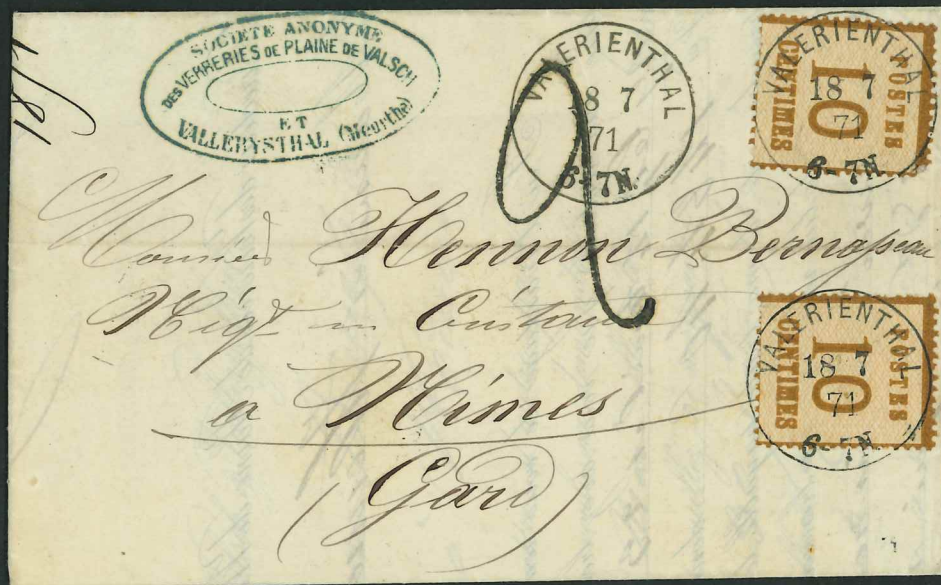 18/7
SOCIETE ANONYME
DES VERRERIES DE PLAINE DE VALSCH
ET
VALLERYSTHAL (Meurthe)
VALERIENTHAL
18 7
71
6-7N.
2
POSTES
10
CENTIMES
VALERIENTHAL
18 7
71
6-7N.
Hennon
à Nîmes
(Gard)
POSTES
10
CENTIMES
VALERIENTHAL
18 7
71
6-7N.